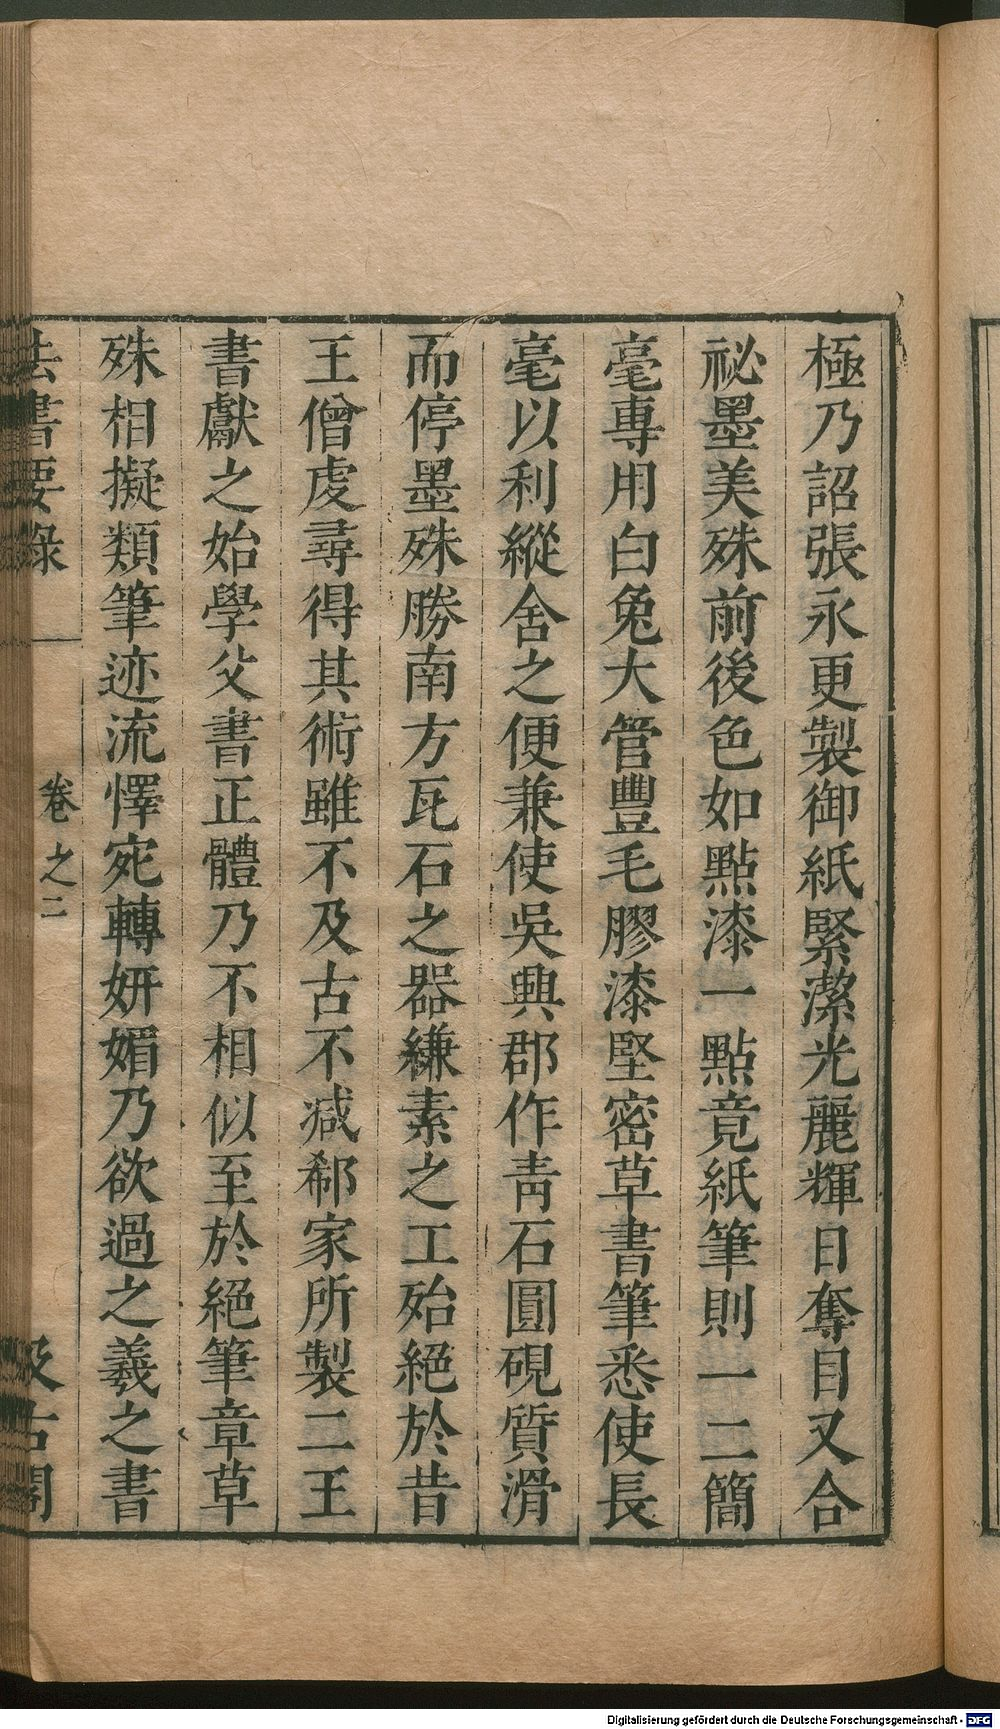 極乃詔張永更製御紙緊潔光麗輝日奪目又合
祕墨美殊前後色如點漆一點竟紙筆則一二簡
毫專用白兔大管豐毛膠漆堅密草書筆悉使長
毫以利縱舍之便兼使吳興郡作青石圓硯質滑
而停墨殊勝南方瓦石之器縑素之工殆絕於昔
王僧虔尋得其術雖不及古不減郗家所製二王
書獻之始學父書正體乃不相似至於絕筆章草
殊相擬類筆迹流懌宛轉妍媚乃欲過之羲之書
法書要錄 卷之二 汲古閣
Digitalisierung gefördert durch die Deutsche Forschungsgemeinschaft - DFG